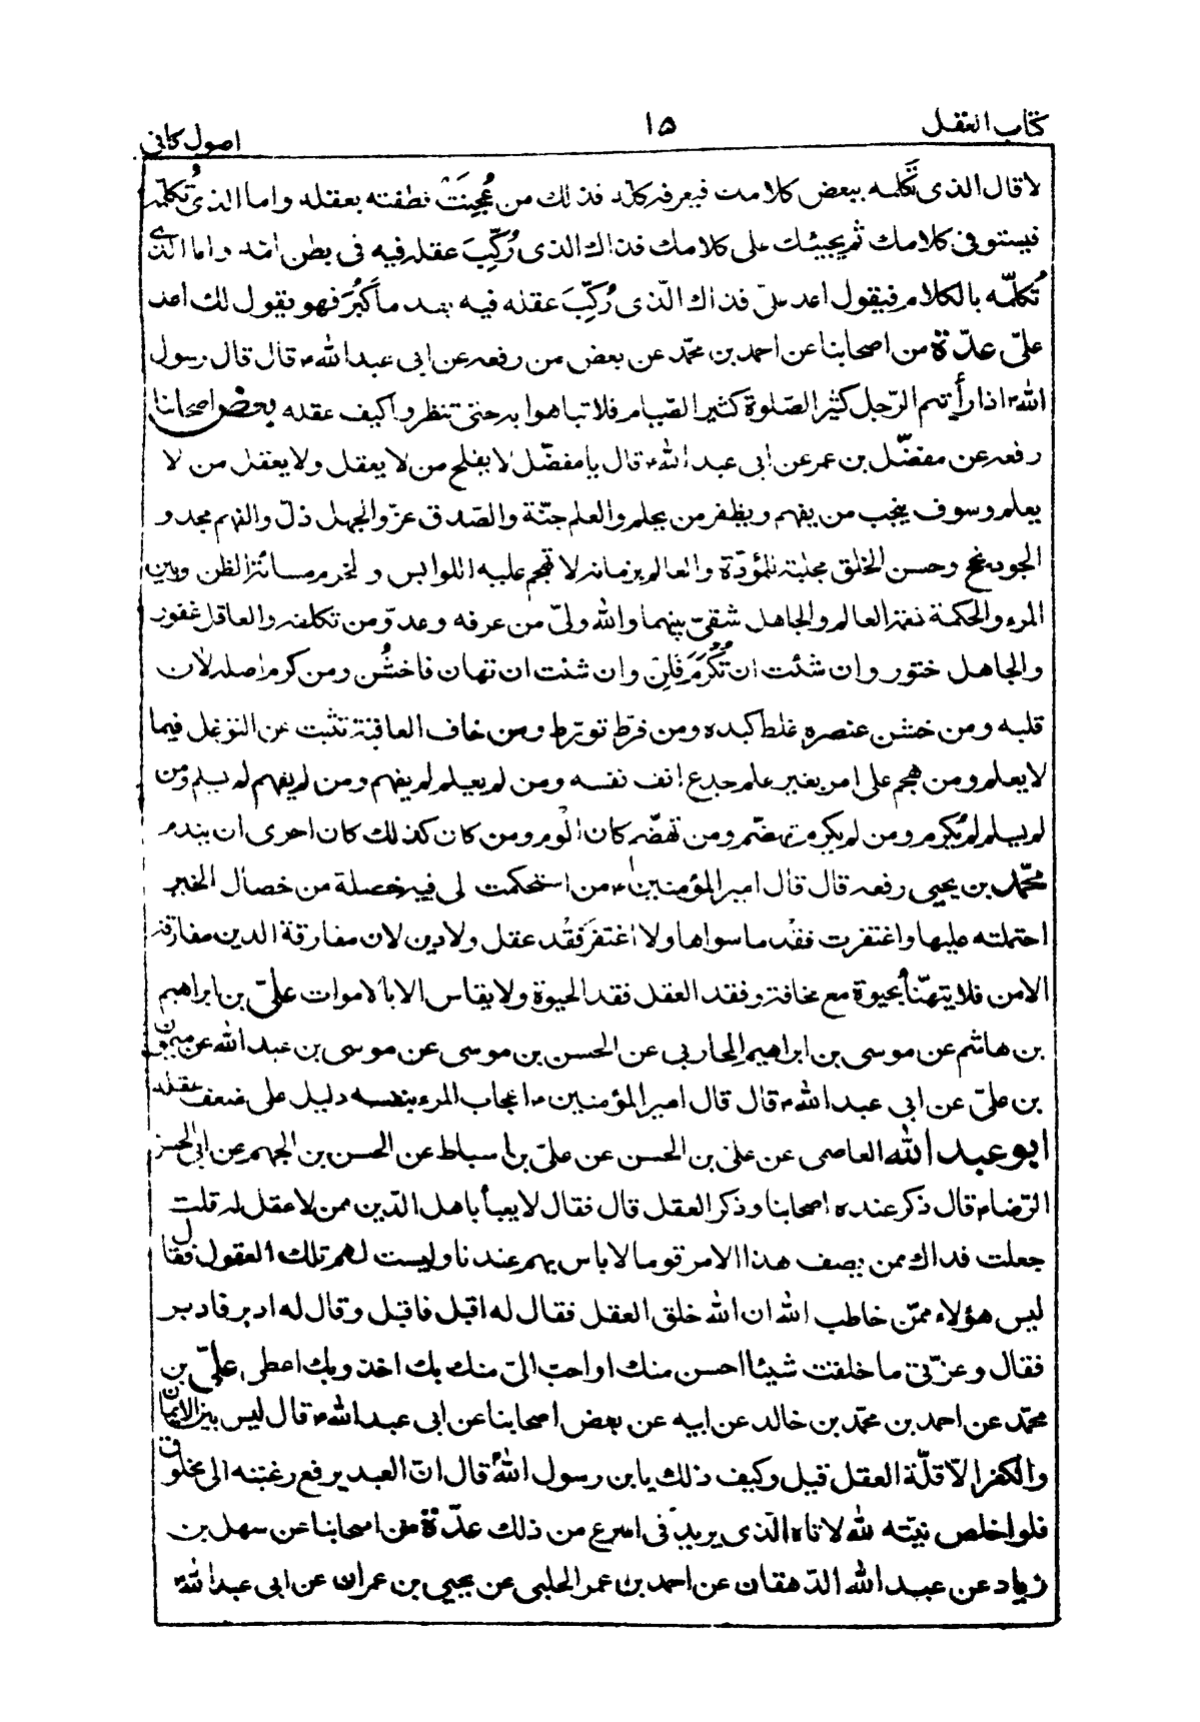 كتاب العقل
١٥
اصول كافى
لا قال الذى تكلمه ببعض كلامك فيعرفه كله فذلك من عُجِنَتْ نطفته بعقله واما الذى تُكلمه
فيستوفى كلامك ثم يجيبك على كلامك فذاك الذى رُكِّبَ عقله فيه فى بطن امّه واما الذى
تُكلّمه بالكلام فيقول اعد علىّ فذاك الّذى رُكِّبَ عقله فيه بعد ما كَبُرَ فهو يقول لك اعد
علىّ عدّة من اصحابنا عن احمد بن محمّد عن بعض من رفعه عن ابى عبد الله ع قال قال رسول
الله ص اذا رأيتم الرّجل كثير الصّلوة كثير الصّيام فلا تباهوا به حتى تنظروا كيف عقله بعض اصحابنا
رفعه عن مفضّل بن عمر عن ابى عبد الله ع قال يا مفضّل لا يفلح من لا يعقل ولا يعقل من لا
يعلم وسوف ينجب من يفهم ويظفر من يحلم والعلم جنّة والصّدق عزّ والجهل ذلّ والفهم مجد و
الجود نجح وحسن الخلق مجلبة للمودّة والعالم بزمانه لا تهجم عليه اللوابس والحزم مسائة الظن وبين
المرء والحكمة نعمة العالم والجاهل شقىّ بينهما والله ولىّ من عرفه وعدوّ من تكلفه والعاقل غفور
والجاهل ختور وان شئت ان تُكْرَمَ فَلِنْ وان شئت ان تهان فاخشُن ومن كرم اصله لان
قلبه ومن خشن عنصره غلظ كبده ومن فرّط تورّط ومن خاف العاقبة تثبت عن التوغل فيما
لا يعلم ومن هجم على امر بغير علم جدع انف نفسه ومن لم يعلم لم يفهم ومن لم يفهم لم يسلم ومن
لم يسلم لم يُكرم ومن لم يكرم تهضّم ومن تهضّم كان الوم ومن كان كذلك كان احرى ان يندم
محمّد بن يحيى رفعه قال قال امير المؤمنين ع من استحكمت لى فيه خصلة من خصال الخير
احتملته عليها واغتفرت فقد ما سواها ولا اغتفر فقْد عقل ولا دين لان مفارقة الدين مفارقة
الامن فلا يتهنّأ بحيوة مع مخافة وفقد العقل فقد الحيوة ولا يقاس الا بالاموات علىّ بن ابراهيم
بن هاشم عن موسى بن ابراهيم المحاربى عن الحسن بن موسى عن موسى بن عبد الله عن ميمون
بن علىّ عن ابى عبد الله ع قال قال امير المؤمنين ع اعجاب المرء بنفسه دليل على ضعف عقله
ابو عبد الله العاصمى عن على بن الحسن عن علىّ بن اسباط عن الحسن بن الجهم عن ابى الحسن
الرّضا ع قال ذكر عنده اصحابنا وذكر العقل قال فقال لا يعبأ باهل الدّين ممن لا عقل له قلت
جعلت فداك ممن يصف هذا الامر قوما لا باس بهم عندنا وليست لهم تلك العقول فقال
ليس هؤلاء ممّن خاطب الله ان الله خلق العقل فقال له اقبل فاقبل وقال له ادبر فادبر
فقال وعزّتى ما خلقت شيئا احسن منك او احبّ الىّ منك بك اخذ وبك اعطى علىّ بن
محمّد عن احمد بن محمّد بن خالد عن ابيه عن بعض اصحابنا عن ابى عبد الله ع قال ليس بين الايمان
والكفر الّا قلّة العقل قيل وكيف ذلك يا بن رسول الله قال انّ العبد يرفع رغبته الى مخلوق
فلو اخلص نيّته لله لاتاه الّذى يريد فى اسرع من ذلك عدّة من اصحابنا عن سهل بن
زياد عن عبيد الله الدّهقان عن احمد بن عمر الحلبى عن يحيى بن عمران عن ابى عبد الله ع